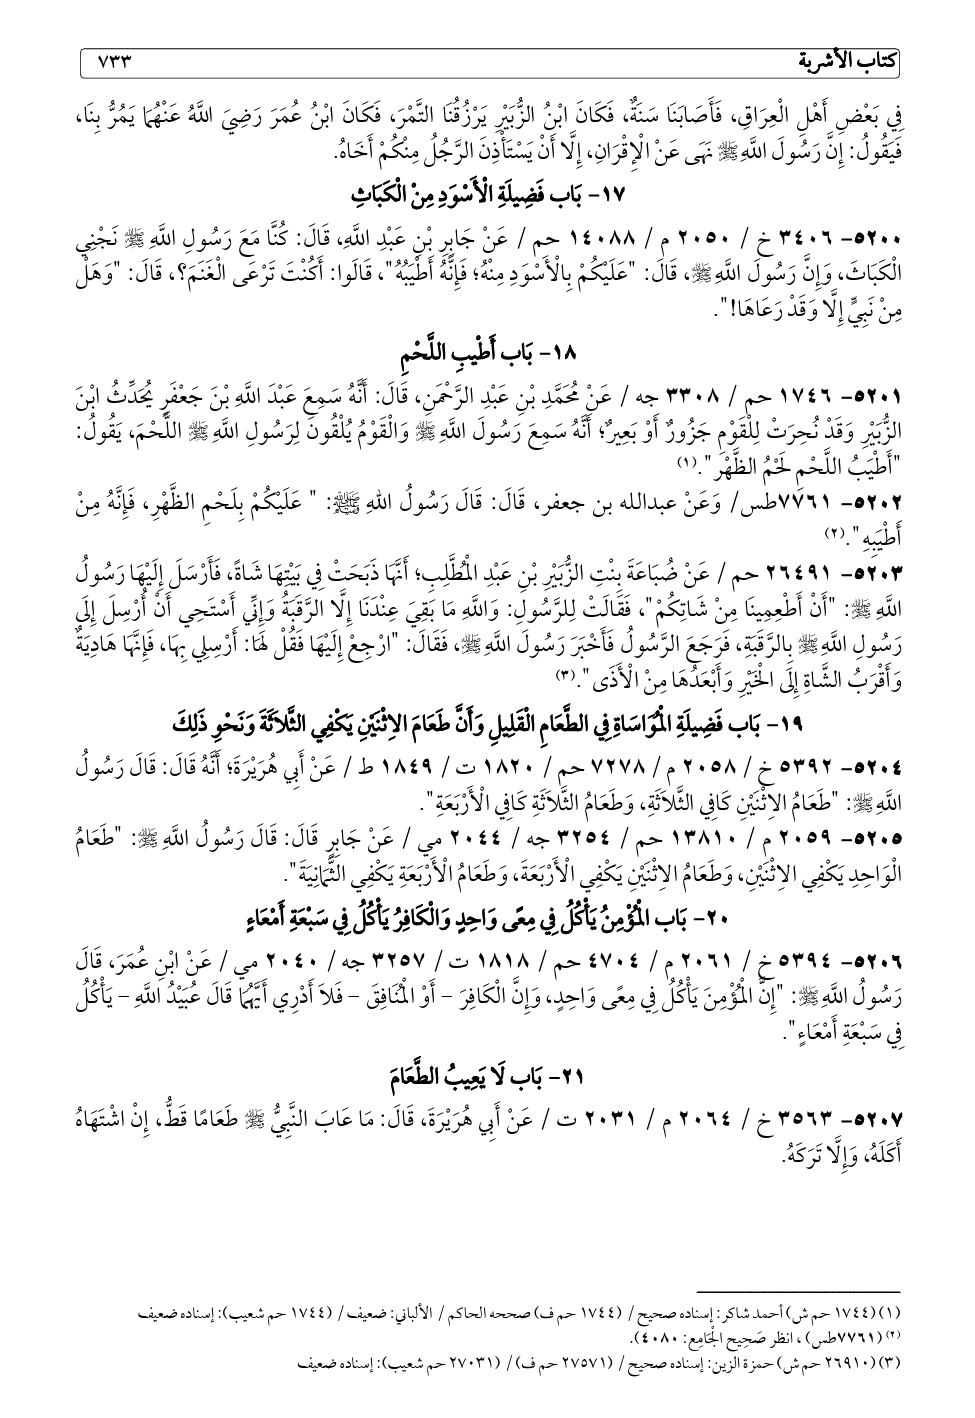 كتاب الأشربة ٧٣٣
فِي بَعْضِ أَهْلِ الْعِرَاقِ، فَأَصَابَنَا سَنَةٌ، فَكَانَ ابْنُ الزُّبَيْرِ يَرْزُقُنَا التَّمْرَ، فَكَانَ ابْنُ عُمَرَ رَضِيَ اللَّهُ عَنْهُمَا يَمُرُّ بِنَا،
فَيَقُولُ: إِنَّ رَسُولَ اللَّهِ ﷺ نَهَى عَنْ الْإِقْرَانِ، إِلَّا أَنْ يَسْتَأْذِنَ الرَّجُلُ مِنْكُمْ أَخَاهُ.
١٧- بَاب فَضِيلَةِ الْأَسْوَدِ مِنْ الْكَبَاثِ
٥٢٠٠- ٣٤٠٦ خ / ٢٠٥٠ م / ١٤٠٨٨ حم / عَنْ جَابِرِ بْنِ عَبْدِ اللَّهِ، قَالَ: كُنَّا مَعَ رَسُولِ اللَّهِ ﷺ نَجْنِي
الْكَبَاثَ، وَإِنَّ رَسُولَ اللَّهِ ﷺ، قَالَ: "عَلَيْكُمْ بِالْأَسْوَدِ مِنْهُ؛ فَإِنَّهُ أَطْيَبُهُ"، قَالُوا: أَكُنْتَ تَرْعَى الْغَنَمَ؟، قَالَ: "وَهَلْ
مِنْ نَبِيٍّ إِلَّا وَقَدْ رَعَاهَا!".
١٨- بَاب أَطْيَبِ اللَّحْمِ
٥٢٠١- ١٧٤٦ حم / ٣٣٠٨ جه / عَنْ مُحَمَّدِ بْنِ عَبْدِ الرَّحْمَنِ، قَالَ: أَنَّهُ سَمِعَ عَبْدَ اللَّهِ بْنَ جَعْفَرٍ يُحَدِّثُ ابْنَ
الزُّبَيْرِ وَقَدْ نُحِرَتْ لِلْقَوْمِ جَزُورٌ أَوْ بَعِيرٌ؛ أَنَّهُ سَمِعَ رَسُولَ اللَّهِ ﷺ وَالْقَوْمُ يُلْقُونَ لِرَسُولِ اللَّهِ ﷺ اللَّحْمَ، يَقُولُ:
"أَطْيَبُ اللَّحْمِ لَحْمُ الظَّهْرِ".(١)
٥٢٠٢- ٧٧٦١طس/ وَعَنْ عبدالله بن جعفر، قَالَ: قَالَ رَسُولُ اللهِ ﷺ: " عَلَيْكُمْ بِلَحْمِ الظَّهْرِ، فَإِنَّهُ مِنْ
أَطْيَبِهِ".(٢)
٥٢٠٣- ٢٦٤٩١ حم / عَنْ ضُبَاعَةَ بِنْتِ الزُّبَيْرِ بْنِ عَبْدِ الْمُطَّلِبِ؛ أَنَّهَا ذَبَحَتْ فِي بَيْتِهَا شَاةً، فَأَرْسَلَ إِلَيْهَا رَسُولُ
اللَّهِ ﷺ: "أَنْ أَطْعِمِينَا مِنْ شَاتِكُمْ"، فَقَالَتْ لِلرَّسُولِ: وَاللَّهِ مَا بَقِيَ عِنْدَنَا إِلَّا الرَّقَبَةُ وَإِنِّي أَسْتَحِي أَنْ أُرْسِلَ إِلَى
رَسُولِ اللَّهِ ﷺ بِالرَّقَبَةِ، فَرَجَعَ الرَّسُولُ فَأَخْبَرَ رَسُولَ اللَّهِ ﷺ، فَقَالَ: "ارْجِعْ إِلَيْهَا فَقُلْ لَهَا: أَرْسِلِي بِهَا، فَإِنَّهَا هَادِيَةٌ
وَأَقْرَبُ الشَّاةِ إِلَى الْخَيْرِ وَأَبْعَدُهَا مِنْ الْأَذَى".(٣)
١٩- بَاب فَضِيلَةِ الْمُوَاسَاةِ فِي الطَّعَامِ الْقَلِيلِ وَأَنَّ طَعَامَ الِاثْنَيْنِ يَكْفِي الثَّلَاثَةَ وَنَحْوِ ذَلِكَ
٥٢٠٤- ٥٣٩٢ خ / ٢٠٥٨ م / ٧٢٧٨ حم / ١٨٢٠ ت / ١٨٤٩ ط / عَنْ أَبِي هُرَيْرَةَ؛ أَنَّهُ قَالَ: قَالَ رَسُولُ
اللَّهِ ﷺ: "طَعَامُ الِاثْنَيْنِ كَافِي الثَّلَاثَةِ، وَطَعَامُ الثَّلَاثَةِ كَافِي الْأَرْبَعَةِ".
٥٢٠٥- ٢٠٥٩ م / ١٣٨١٠ حم / ٣٢٥٤ جه / ٢٠٤٤ مي / عَنْ جَابِرٍ قَالَ: قَالَ رَسُولُ اللَّهِ ﷺ: "طَعَامُ
الْوَاحِدِ يَكْفِي الِاثْنَيْنِ، وَطَعَامُ الِاثْنَيْنِ يَكْفِي الْأَرْبَعَةَ، وَطَعَامُ الْأَرْبَعَةِ يَكْفِي الثَّمَانِيَةَ".
٢٠- بَاب الْمُؤْمِنُ يَأْكُلُ فِي مِعًى وَاحِدٍ وَالْكَافِرُ يَأْكُلُ فِي سَبْعَةِ أَمْعَاءٍ
٥٢٠٦- ٥٣٩٤ خ / ٢٠٦١ م / ٤٧٠٤ حم / ١٨١٨ ت / ٣٢٥٧ جه / ٢٠٤٠ مي / عَنْ ابْنِ عُمَرَ، قَالَ
رَسُولُ اللَّهِ ﷺ: "إِنَّ الْمُؤْمِنَ يَأْكُلُ فِي مِعًى وَاحِدٍ، وَإِنَّ الْكَافِرَ - أَوْ الْمُنَافِقَ - فَلَا أَدْرِي أَيَّهُمَا قَالَ عُبَيْدُ اللَّهِ - يَأْكُلُ
فِي سَبْعَةِ أَمْعَاءٍ".
٢١- بَاب لَا يَعِيبُ الطَّعَامَ
٥٢٠٧- ٣٥٦٣ خ / ٢٠٦٤ م / ٢٠٣١ ت / عَنْ أَبِي هُرَيْرَةَ، قَالَ: مَا عَابَ النَّبِيُّ ﷺ طَعَامًا قَطُّ، إِنْ اشْتَهَاهُ
أَكَلَهُ، وَإِلَّا تَرَكَهُ.
(١) (١٧٤٤ حم ش) أحمد شاكر: إسناده صحيح / (١٧٤٤ حم ف) صححه الحاكم / الألباني: ضعيف / (١٧٤٤ حم شعيب): إسناده ضعيف
(٢) (٧٧٦١طس) ، انظر صَحِيح الْجَامِع: ٤٠٨٠).
(٣) (٢٦٩١٠ حم ش) حمزة الزين: إسناده صحيح / (٢٧٥٧١ حم ف)/ (٢٧٠٣١ حم شعيب): إسناده ضعيف